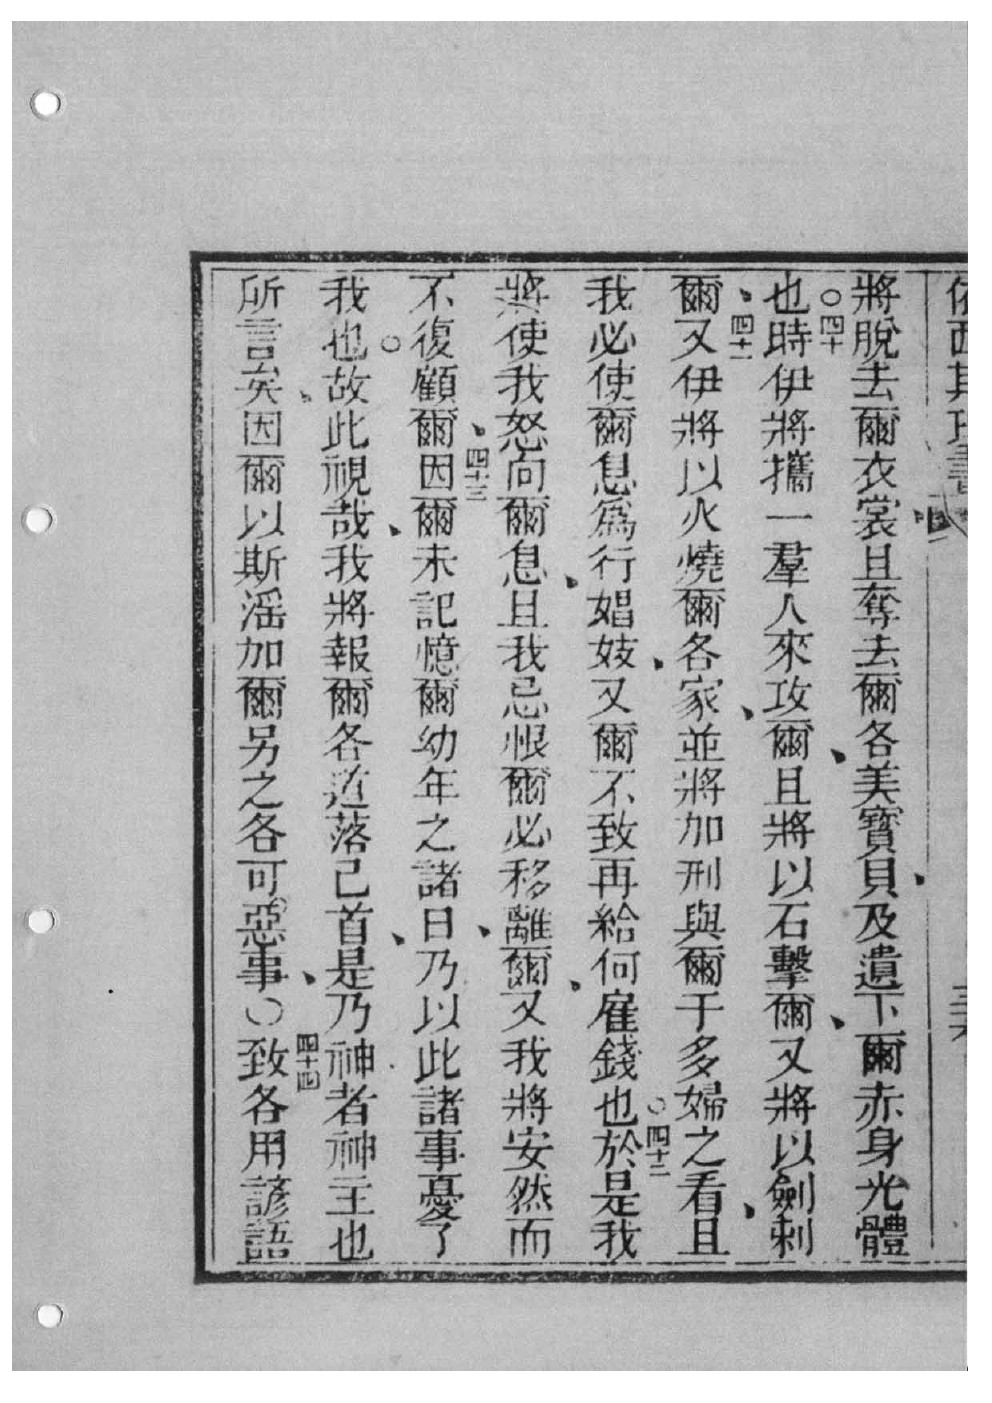 將脫去爾衣裳且奪去爾各美寶貝及遺下爾赤身光體
○四十
也時伊將攜一羣人來攻爾且將以石擊爾又將以劍刺
四十一
爾又伊將以火燒爾各家並將加刑與爾于多婦之看且
我必使爾息爲行娼妓又爾不致再給何雇錢也○於是我
四十二
將使我怒向爾息且我忌恨爾必移離爾又我將安然而
不復顧爾因爾未記憶爾幼年之諸日乃以此諸事憂了
四十三
我也○故此視哉我將報爾各道落己首是乃神者神主也
所言矣因爾以斯滛加爾另之各可惡事○致各用諺語
四十四